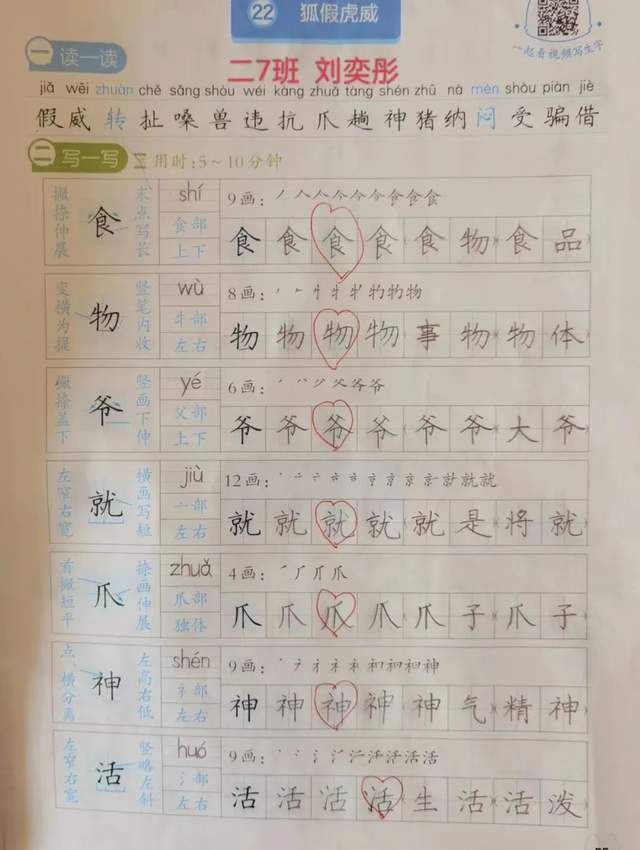 22 狐假虎威
一起看视频写生字
一 读一读
二7班 刘奕彤
jiǎ wēi zhuàn chě sǎng shòu wéi kàng zhuǎ tàng shén zhū nà mèn shòu piàn jiè
假 威 转 扯 嗓 兽 违 抗 爪 趟 神 猪 纳 闷 受 骗 借
二 写一写 用时:5~10分钟
撇捺伸展 食 末点写长 shí 食部 上下
9画:
食 食 食 食 食 物 食 品
变横为提 物 竖笔内收 wù 牛部 左右
8画:
物 物 物 物 事 物 物 体
撇捺盖下 爷 竖画下伸 yé 父部 上下
6画:
爷 爷 爷 爷 爷 爷 大 爷
左窄右宽 就 横画写短 jiù 亠部 左右
12画:
就 就 就 就 就 是 将 就
首撇短平 爪 捺画伸展 zhuǎ 爪部 独体
4画:
爪 爪 爪 爪 爪 子 爪 子
点、横分离 神 左高右低 shén 礻部 左右
9画:
神 神 神 神 神 气 精 神
左窄右宽 活 竖略左斜 huó 氵部 左右
9画:
活 活 活 活 生 活 活 泼